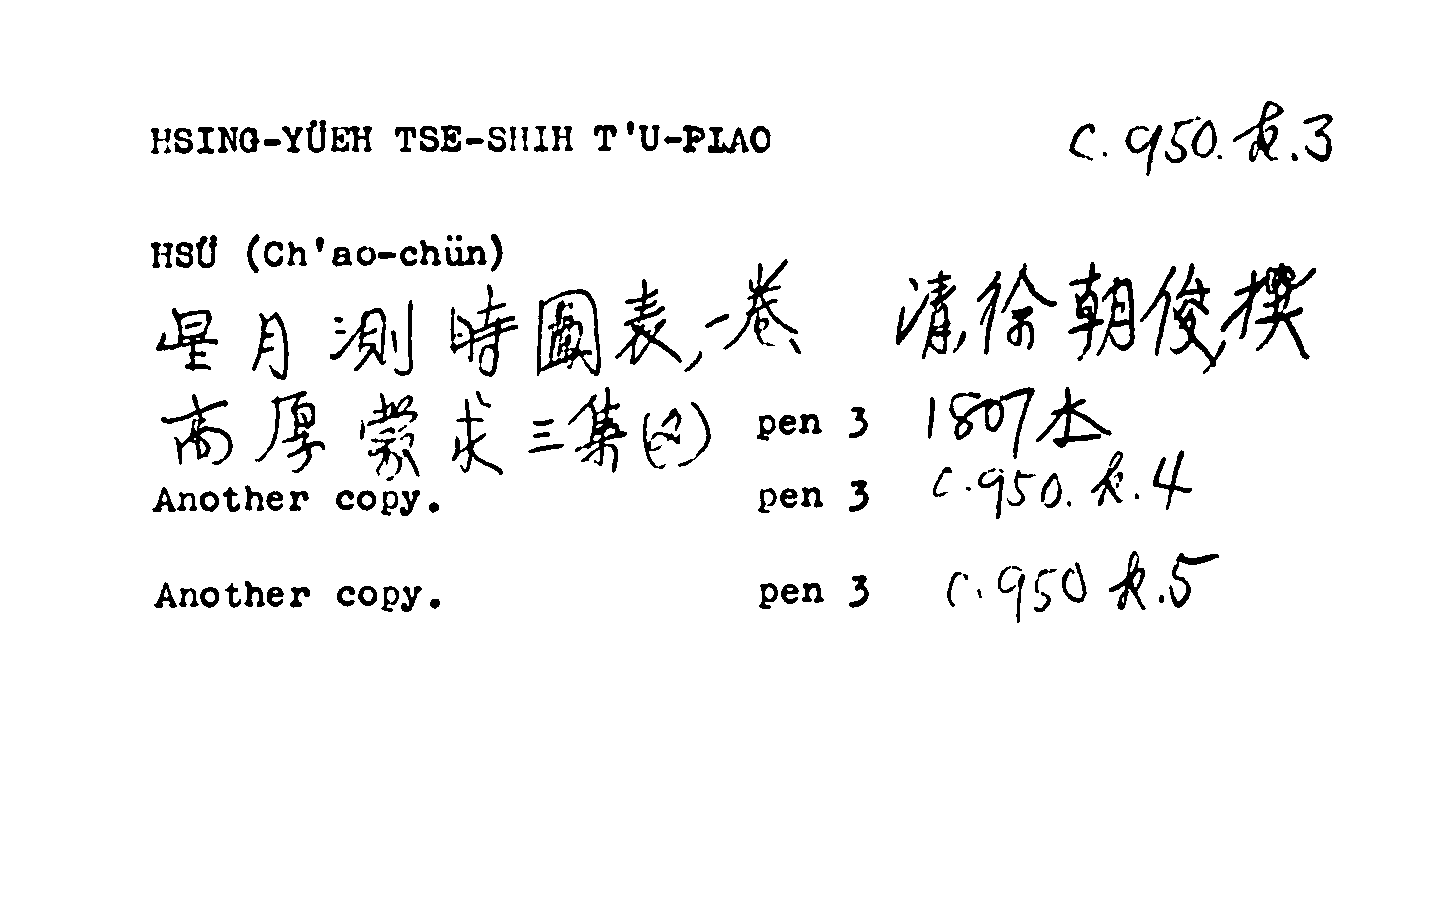 HSING-YÜEH TSE-SHIH T'U-PIAO C.950.k.3
HSÜ (Ch'ao-chün)
星月測時圖表,一卷 清,徐朝俊,撰
高厚蒙求三集(2) pen 3 1807本
Another copy. pen 3 C.950.k.4
Another copy. pen 3 C.950 k.5